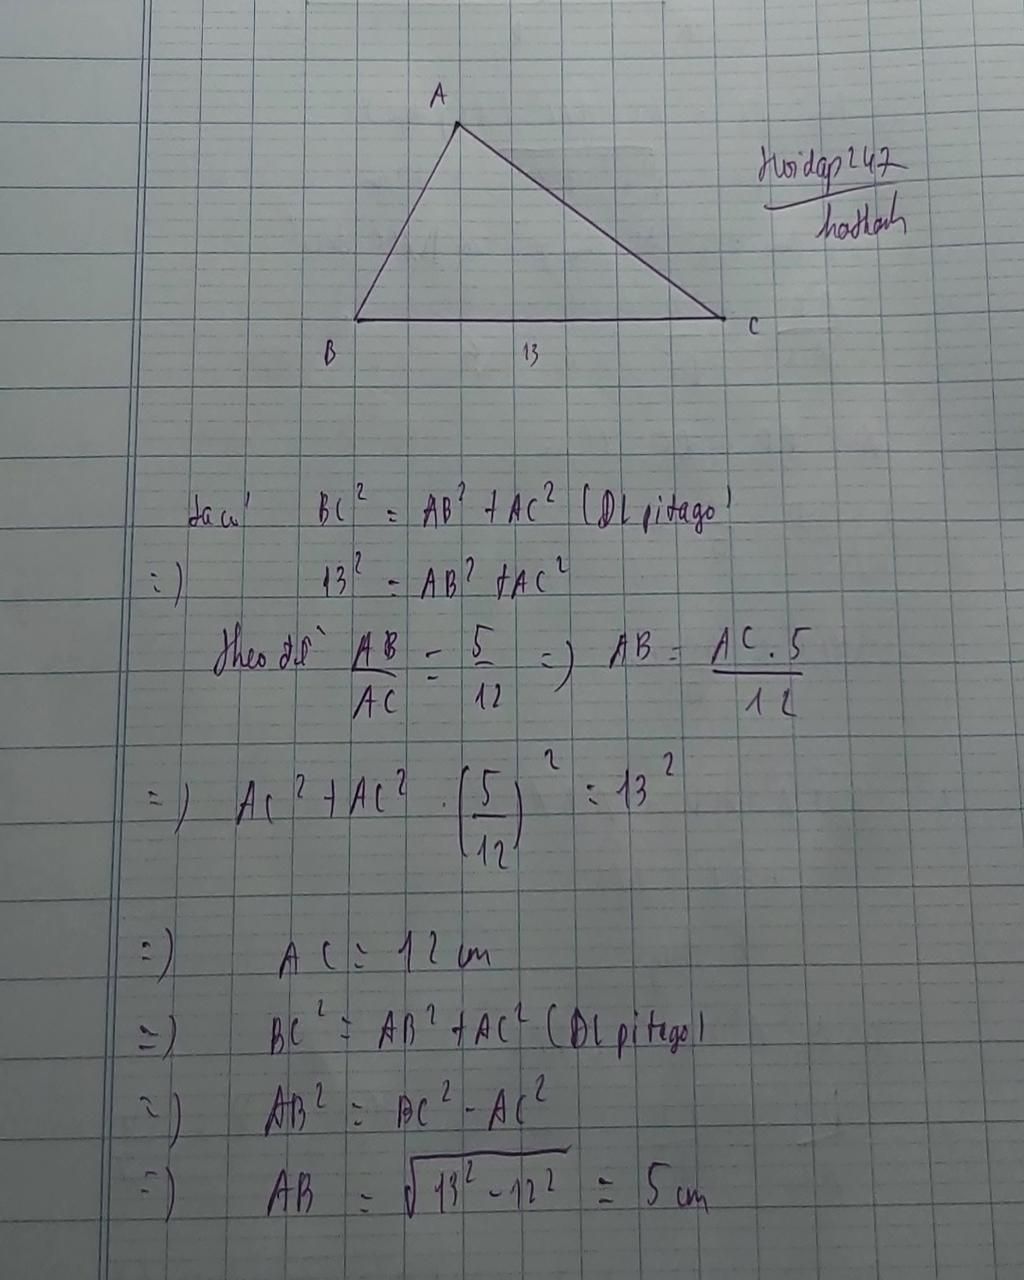 A
Hoidap247
hathanh
B
13
C
ta có BC² = AB² + AC² (ĐL pitago)
=) 13² = AB² + AC²
theo đề AB/AC = 5/12 =) AB = AC.5/12
=) AC² + AC² . (5/12)² = 13²
=) AC = 12 cm
=) BC² = AB² + AC² (ĐL pitago)
=) AB² = BC² - AC²
=) AB = √13² - 12² = 5 cm